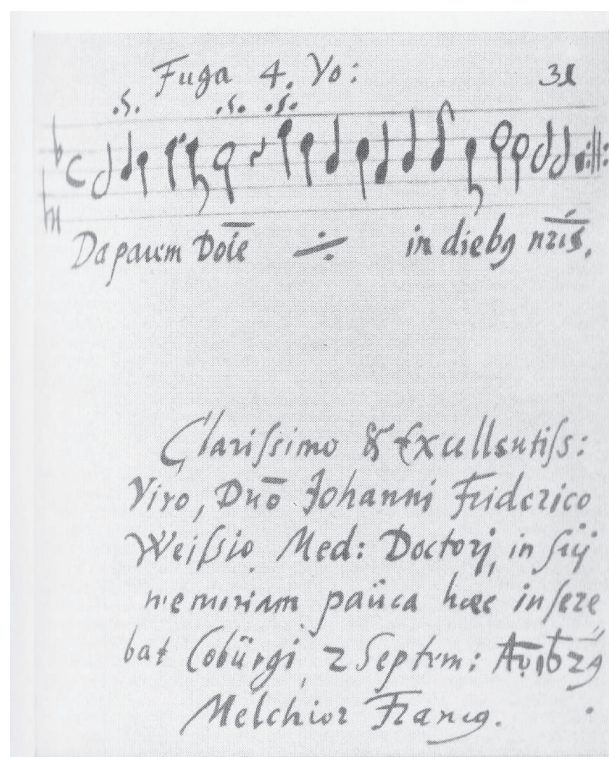 Fuga 4. Vo: 31
.S. .S. .S.
Da pacem Dōie ÷ in diebꝯ nr̄is.
Clariſsimo & Excellentiſs:
Viro, Dnō Johanni Friderico
Weiſsio, Med: Doctori, in ſuj
memoriam pauca hæc inſere
bat Coburgi, 2 Septem:
Melchior Francꝯ.